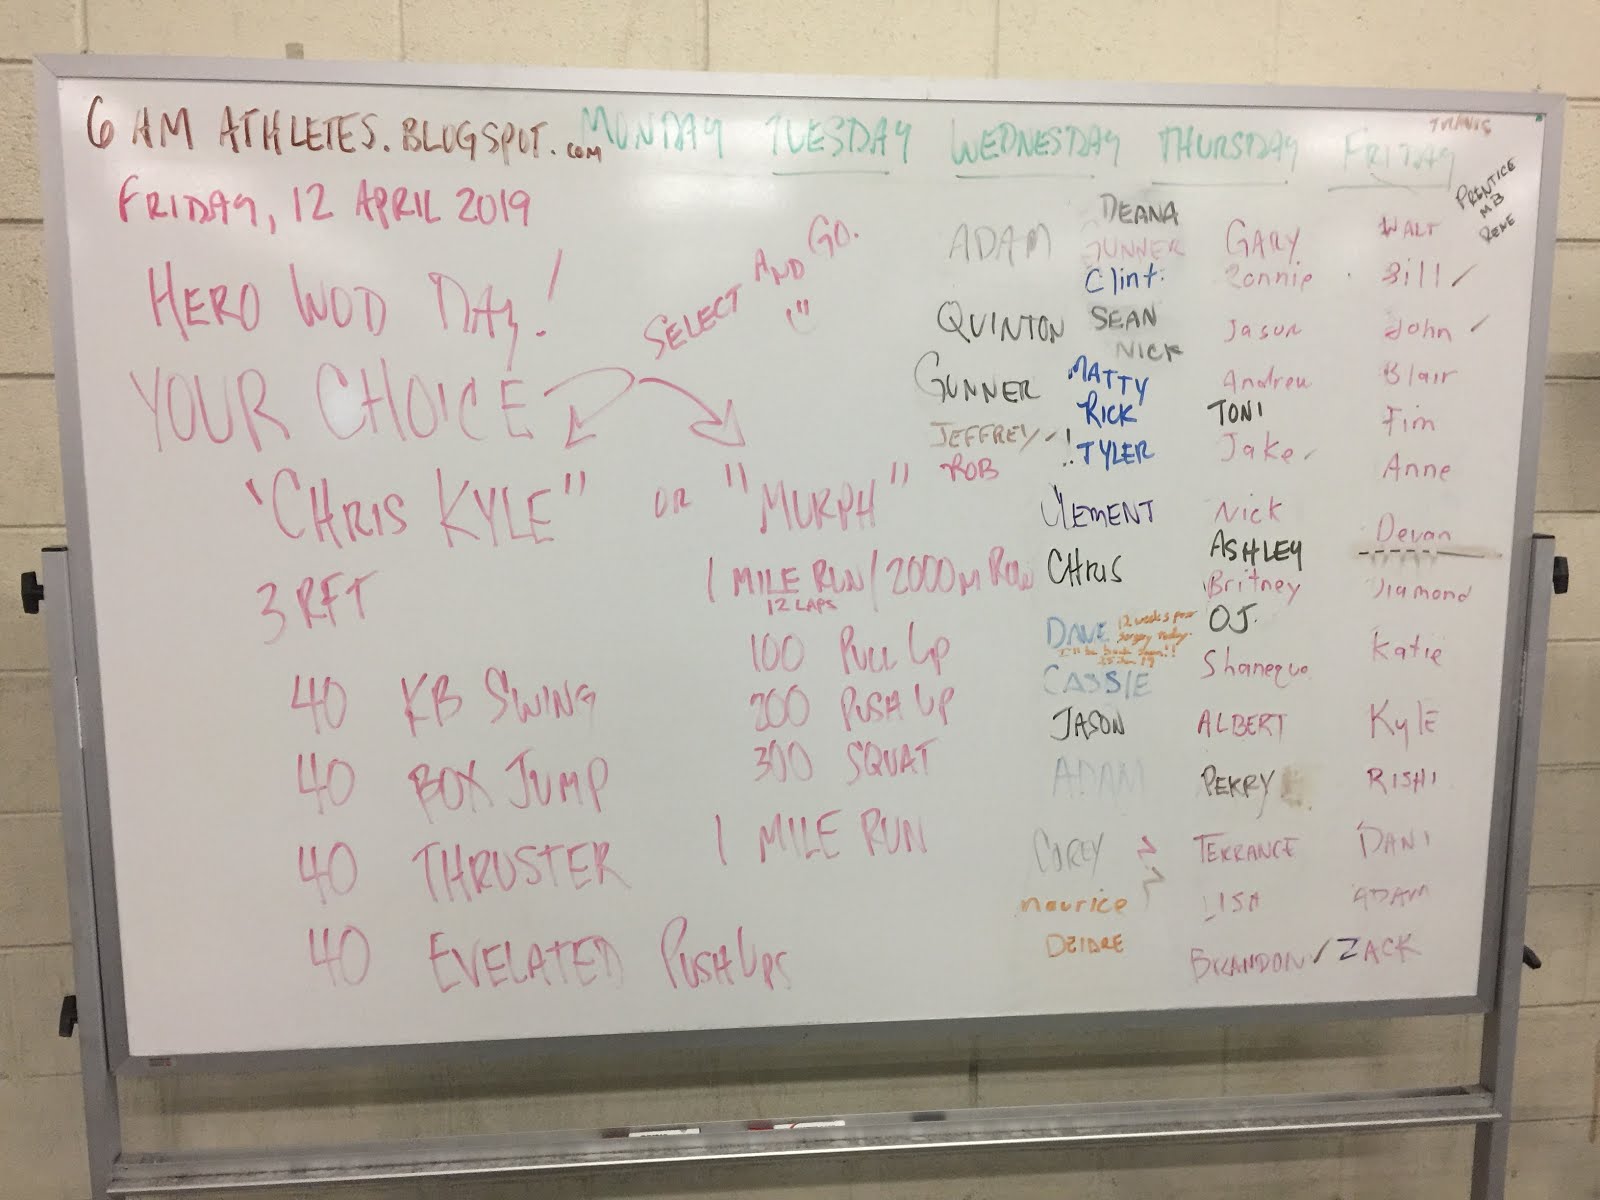 6 AM ATHLETES.BLOGSPOT.com
MONDAY TUESDAY WEDNESDAY THURSDAY FRIDAY
TRAVIS
FRIDAY, 12 APRIL 2019
PRENTICE
MB
RENE
HERO WOD DAY!
SELECT AND GO.
YOUR CHOICE
"CHRIS KYLE" OR "MURPH"
3 RFT
40 KB SWING
40 BOX JUMP
40 THRUSTER
40 EVELATED PUSH UPS
1 MILE RUN / 2000 M ROW
12 LAPS
100 PULL UP
200 PUSH UP
300 SQUAT
1 MILE RUN
ADAM
QUINTON
GUNNER
JEFFREY
ROB
DEANA
GUNNER
Clint
SEAN
NICK
MATTY
RICK
! TYLER
CLEMENT
CHRIS
DAVE
12 weeks post
Surgery today.
I'll be back soon!!
CASSIE
JASON
ADAM
COREY
maurice
DEIDRE
GARY
Ronnie
Jason
Andrew
TONI
Jake
Nick
ASHLEY
Britney
OJ.
Shanequa
ALBERT
PERRY
TERRANCE
LISA
BRANDON / ZACK
WALT
Bill ✓
John ✓
Blair
Tim
Anne
Devan
Diamond
Katie
KylE
RISHI
DANI
ADAM